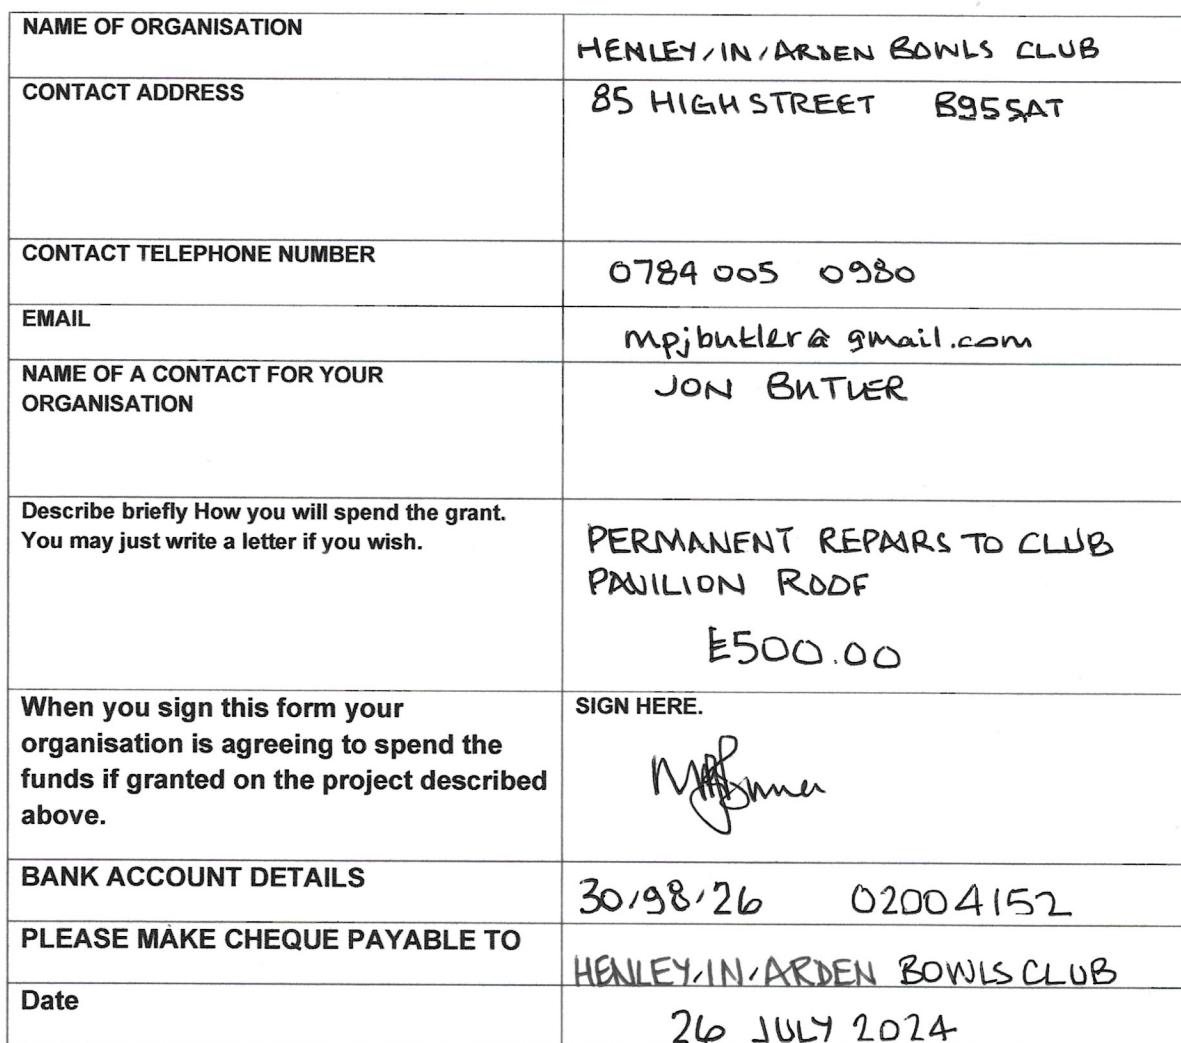 NAME OF ORGANISATION
HENLEY-IN-ARDEN BOWLS CLUB
CONTACT ADDRESS
85 HIGH STREET B95 5AT
CONTACT TELEPHONE NUMBER
0784 005 0980
EMAIL
mpjbutler@gmail.com
NAME OF A CONTACT FOR YOUR
ORGANISATION
JON BUTLER
Describe briefly How you will spend the grant.
You may just write a letter if you wish.
PERMANENT REPAIRS TO CLUB
PAVILION ROOF
£500.00
When you sign this form your
organisation is agreeing to spend the
funds if granted on the project described
above.
SIGN HERE.
BANK ACCOUNT DETAILS
30-98-26 02004152
PLEASE MAKE CHEQUE PAYABLE TO
HENLEY-IN-ARDEN BOWLS CLUB
Date
26 JULY 2024